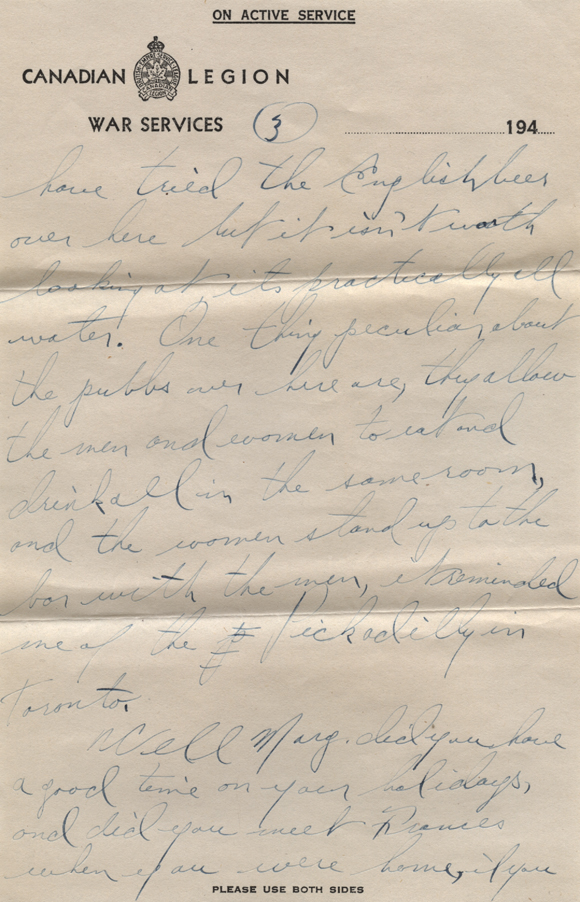 ON ACTIVE SERVICE
CANADIAN LEGION
WAR SERVICES 3 194
have tried the English beer
over here but it isn't worth
looking at, its practically all
water. One thing peculiar about
the pubbs over here are, they allow
the men and women to eat and
drink all in the same room,
and the women stand up to the
bar with the men, it reminded
me of the Pickadilly in
Toronto.
Well Marg. did you have
a good time on your holidays,
and did you meet Frances
when you were home, if you
PLEASE USE BOTH SIDES